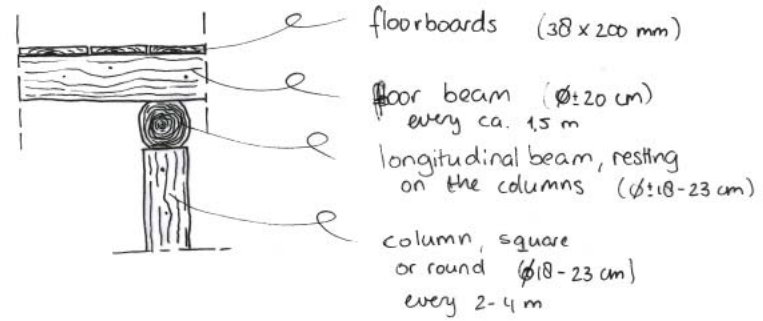 floorboards (38 x 200 mm)
floor beam (Ø±20 cm)
every ca. 1,5 m
longitudinal beam, resting
on the columns (Ø±18-23 cm)
column, square
or round (Ø18-23 cm)
every 2-4 m